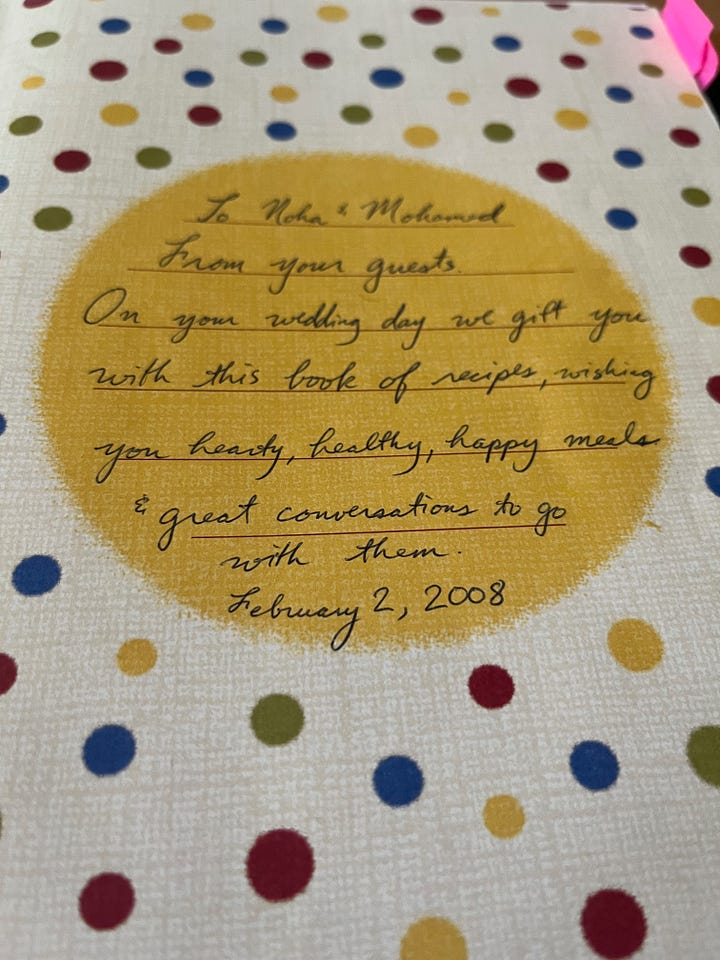 To Noha & Mohamed
From your guests.
On your wedding day we gift you
with this book of recipes, wishing
you hearty, healthy, happy meals
& great conversations to go
with them.
February 2, 2008